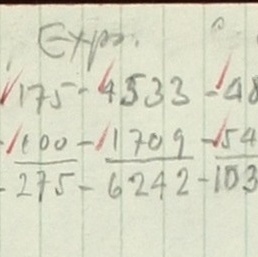 Exps.
175 - 4533 - 48
- 100 - 1709 - 54
- 275 - 6242 - 103